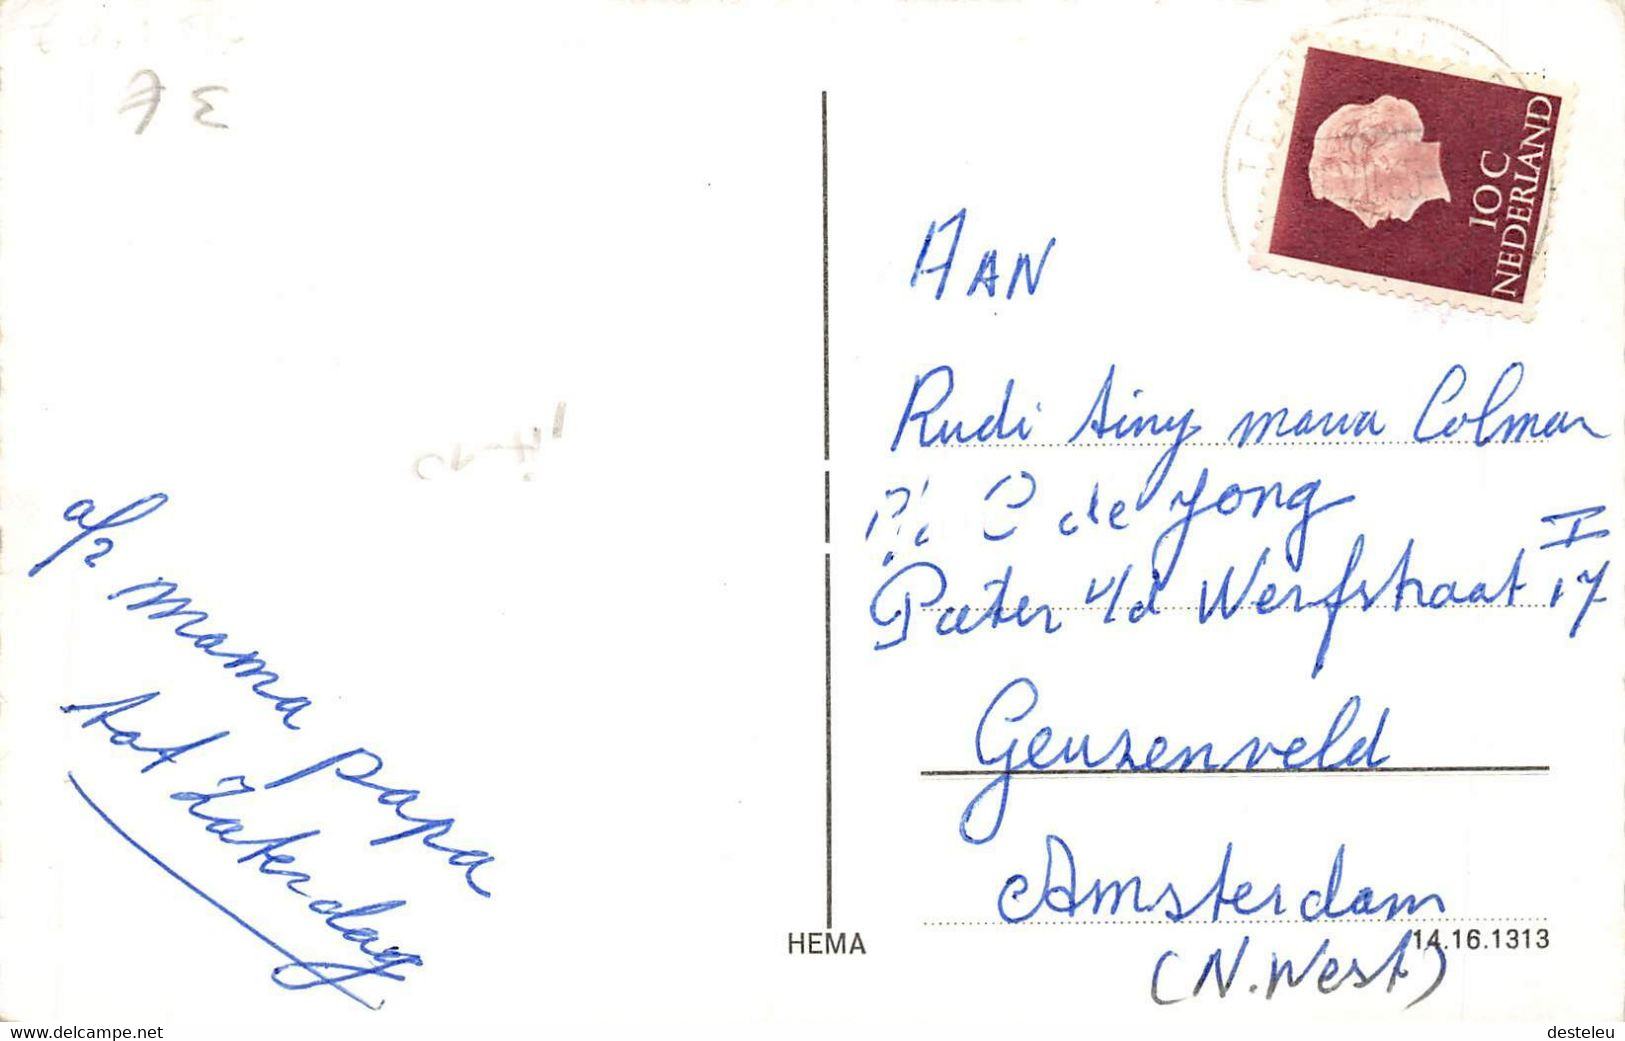 3 €
10 C
NEDERLAND
AAN
Rudi tiny mama Colman
P/a C de Jong
Pieter v/d Werfstraat 17 I
Geuzenveld
Amsterdam
(N. West)
a/z mama papa
tot Zaterdag
HEMA
14.16.1313
www.delcampe.net
desteleu